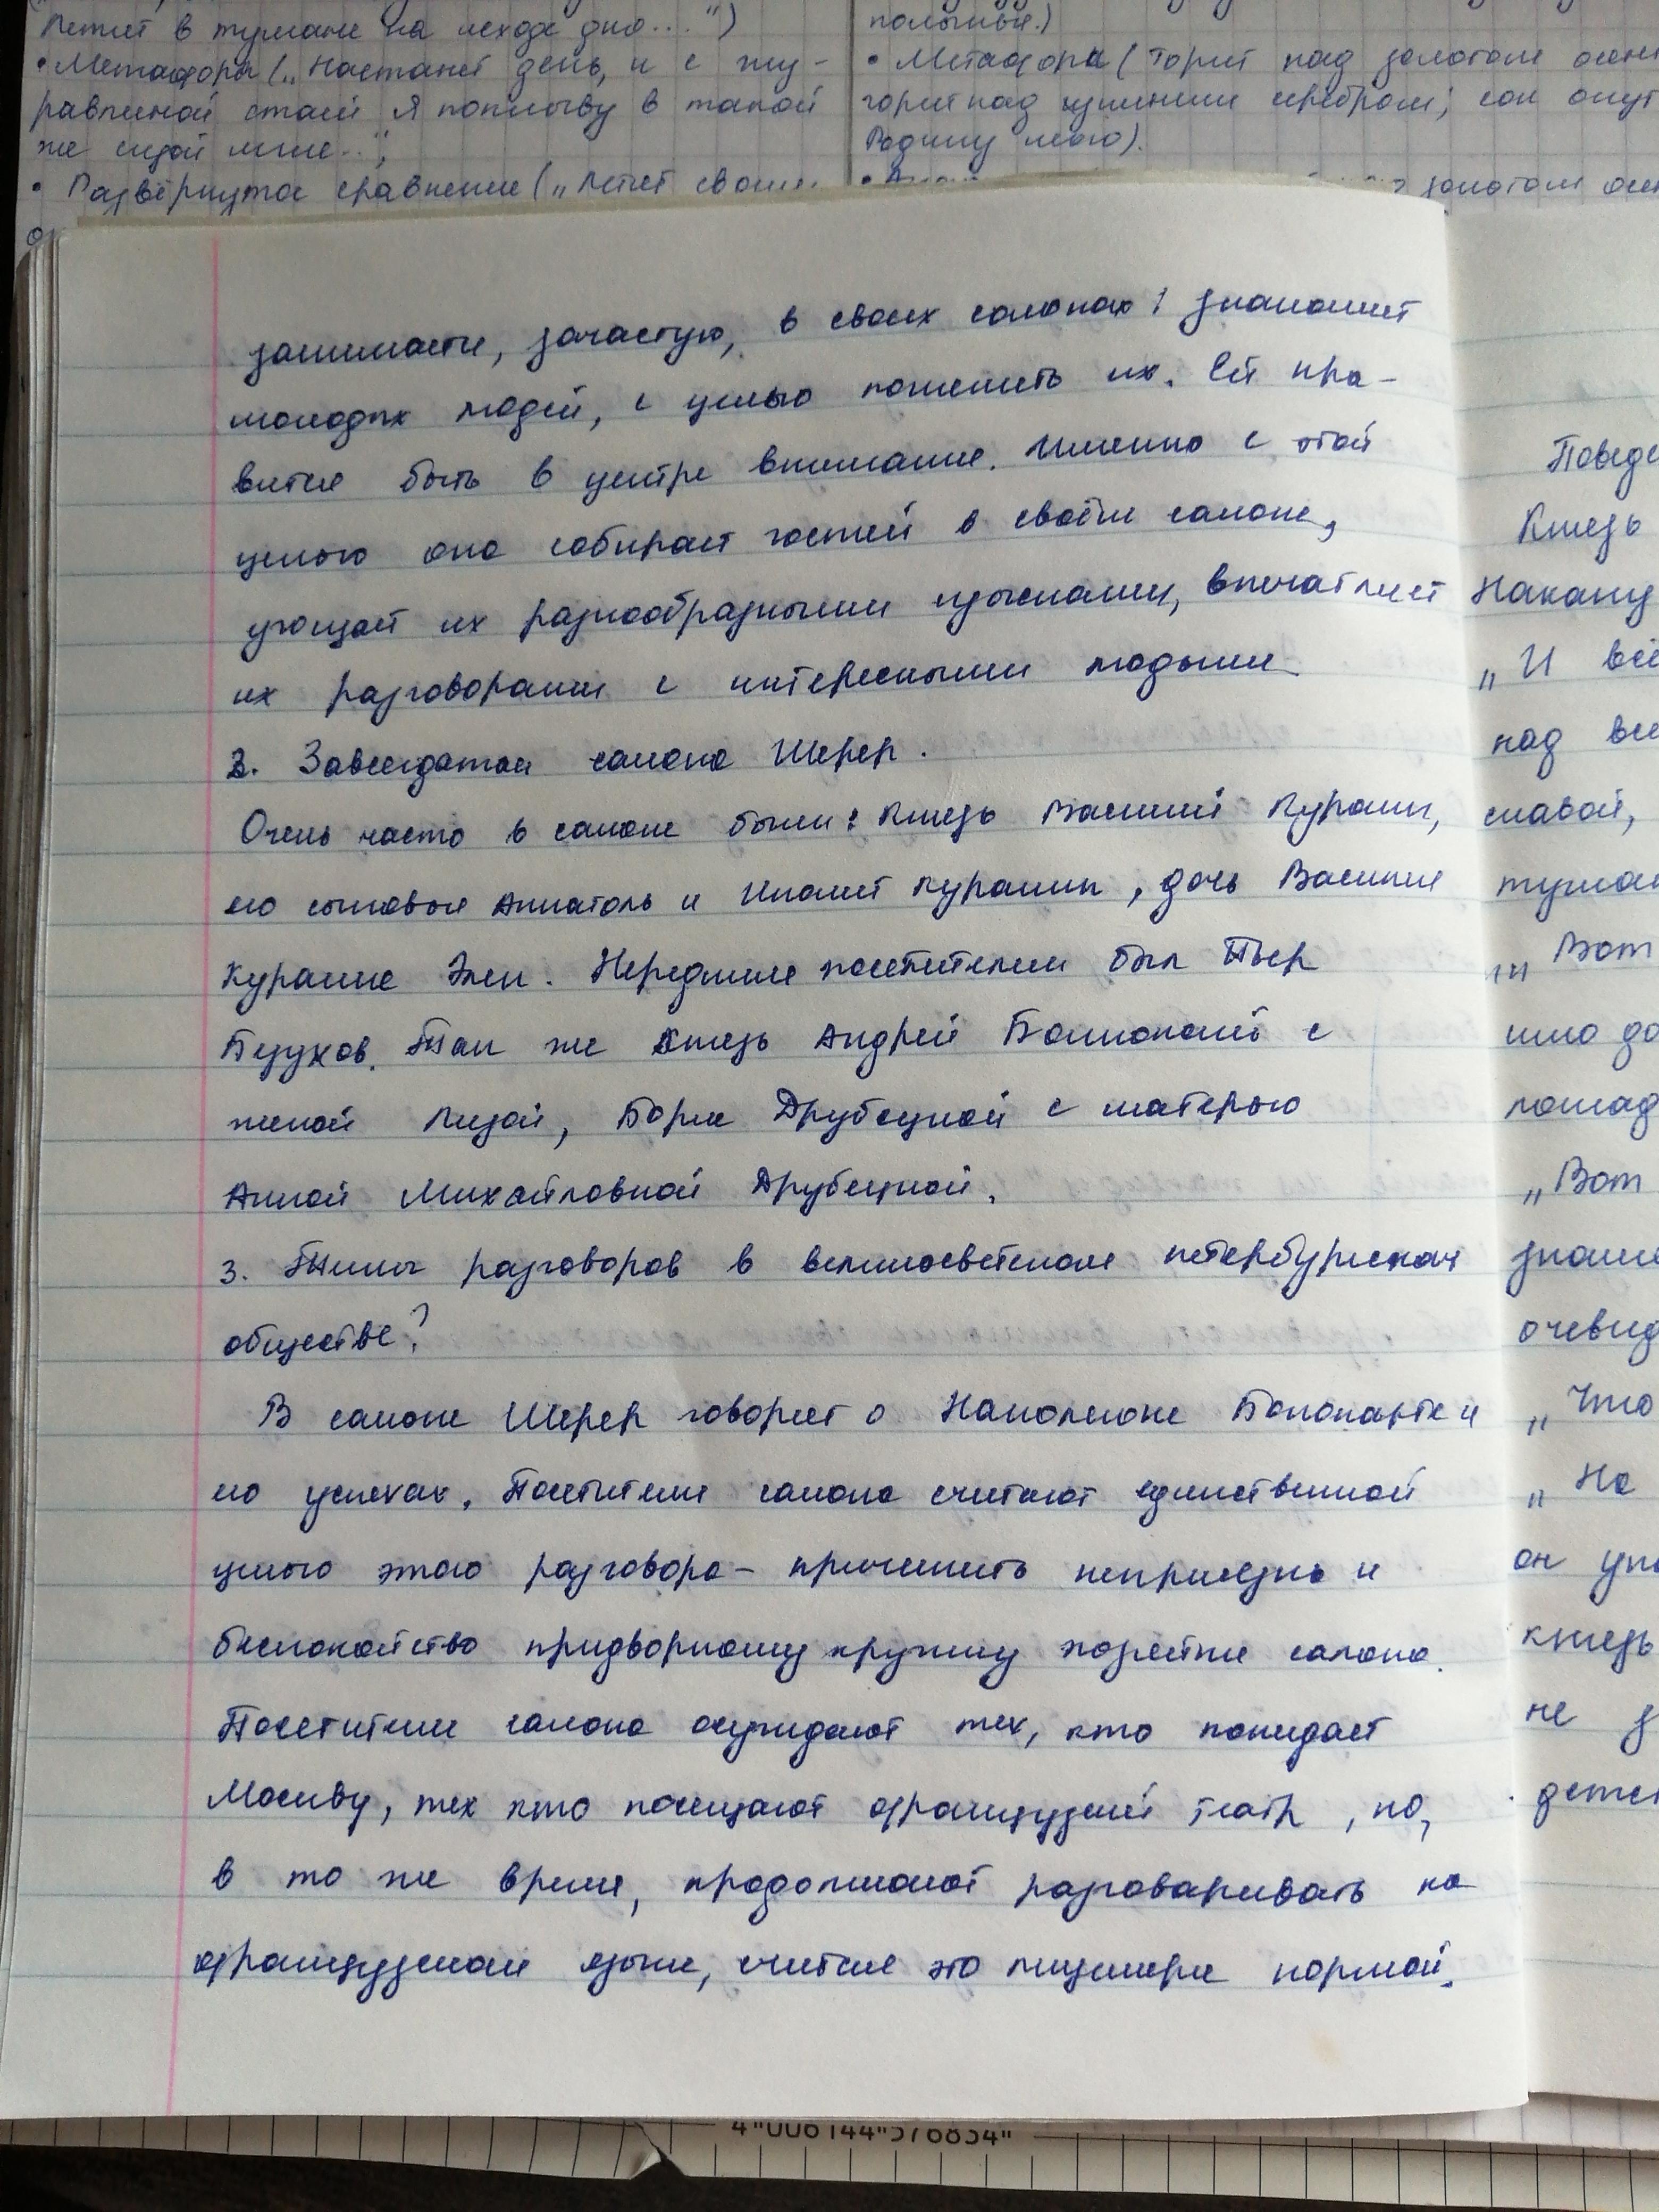 летит в тумане на исходе дня...")
• Метафоры („Настанет день, и с жу-
равлиной стаей я поплыву в такой
же сизой мгле...",
• Развёрнутое сравнение („Летит своим
полыньи.)
• Метафора (Горит над золотом осенн
горит над зимним серебром; сон окут
Родину мою).
золотом осен
занимаети, зачастую, в своих салонах: знакомит
молодых людей, с целью поженить их. Ей нра-
вится быть в центре внимания. Именно с этой
целью она собирает гостей в своём салоне,
угощает их разнообразными изысками, впечатляет
их разговорами с интересными людьми
2. Завсегдатаи салона Шерер.
Очень часто в салоне были: Князь Василий Курагин,
его сыновья Аннатоль и Иполит Курагин, дочь Василия
Курагина Элен. Нередким посетителем был Пьер
Безухов. Так же князь Андрей Болконский с
женой Лизой, Борис Друбецкой с матерью
Анной Михайловной Друбецкой.
3. Темы разговоров в великосветском петербургском
обществе?
В салоне Шерер говорят о Наполеоне Бонопарте и
его успехах. Посетители салона считают единственной
целью этого разговора – причинить неприязнь и
беспокойство придворному кружку хозяйки салона.
Посетители салона осуждают тех, кто покидает
Москву, тех кто посещают французский театр, но,
в то же время, продолжают разговаривать на
французском языке, считая это лицемерие нормой.
Поведе
Князь
Накану
„И всё
над все
славой,
туман
„Вот
шло до
лошад
„Вот
знаме
очевид
„Что
„На
он упа
князь
не з
детей
4"006144"576854"